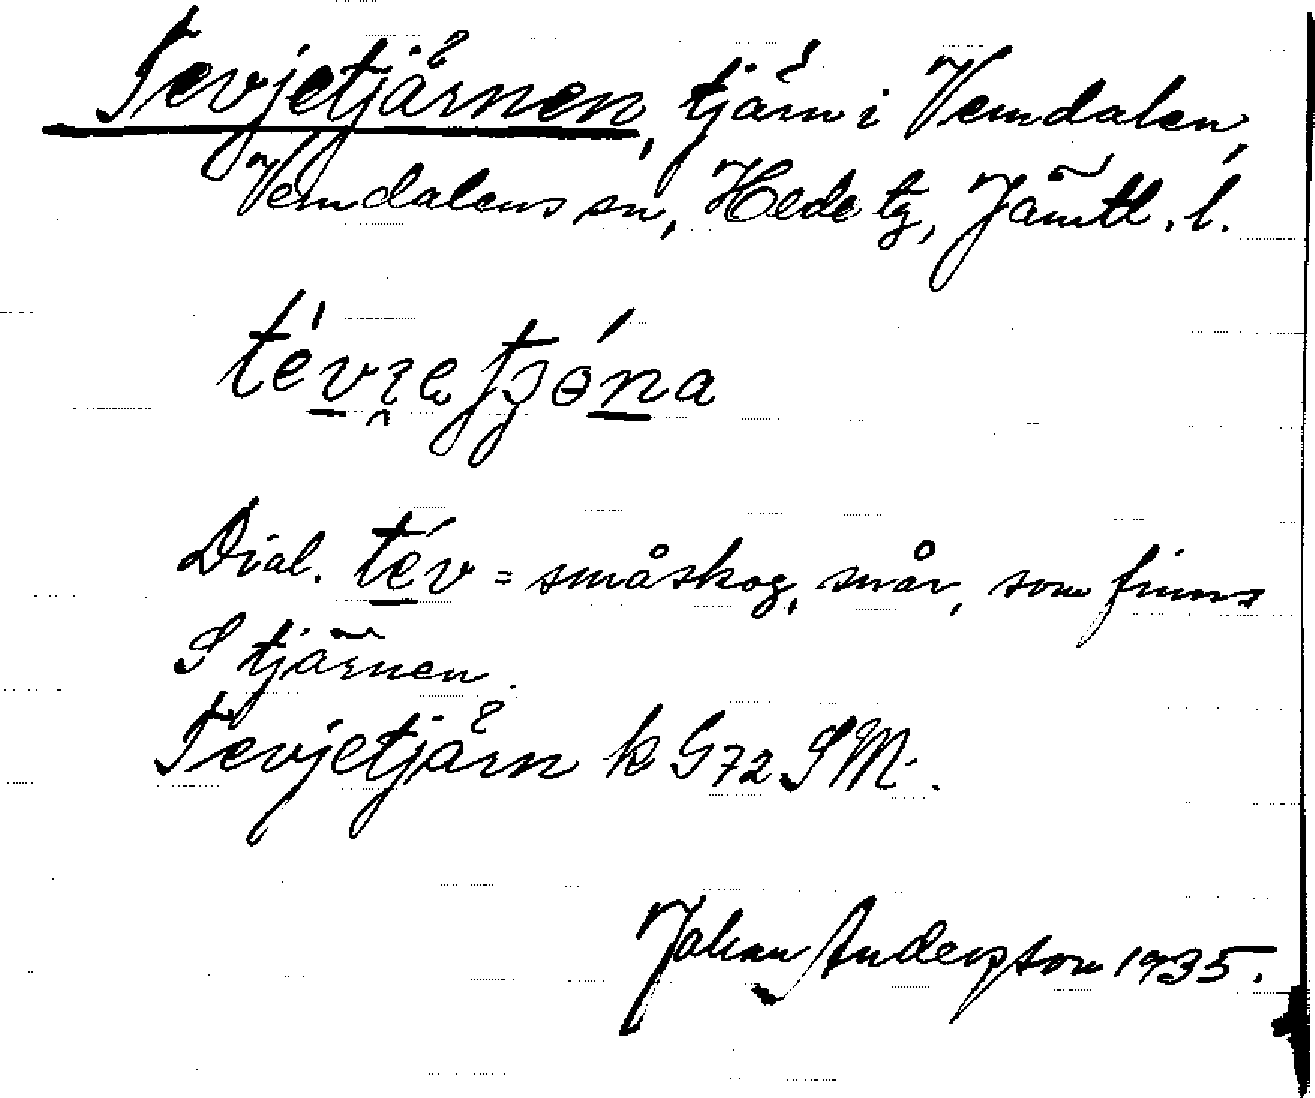 Tevjetjärnen, tjärn i Vemdalen,
Vemdalens sn, Hede tg, Jämtl. l.
Dial. tév = småskog, snår, som finns
S tjärnen.
Tevjetjärn k G72 SM.
Johan Anderson 1935.